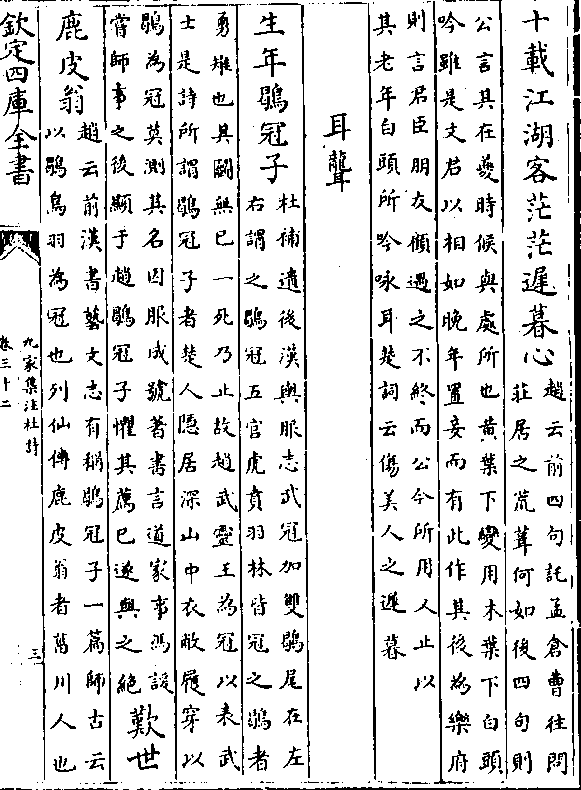 十載江湖客茫茫遲暮心
趙云前四句託孟倉曹往問
莊居之荒葺何如後四句則
公言其在夔時候與處所也黃葉下變用木葉下白頭
吟雖是文君以相如晚年置妾而有此作其後為樂府
則言君臣朋友顧遇之不終而公今所用人止以
其老年白頭所吟咏耳楚詞云傷美人之遲暮
耳聾
生年鶡冠子
杜補遺後漢輿服志武冠加雙鶡尾在左
右謂之鶡冠五官虎賁羽林皆冠之鶡者
勇雉也其鬬無已一死乃止故趙武靈王為冠以表武
士是詩所謂鶡冠子者楚人隱居深山中衣敝履穿以
鶡為冠莫測其名因服成號著書言道家事馮諼
嘗師事之後顯于趙鶡冠子懼其薦已遂與之絶
歎世
鹿皮翁
趙云前漢書藝文志有稱鶡冠子一篇師古云
以鶡鳥羽為冠也列仙傳鹿皮翁者菑川人也
欽定四庫全書
九家集注杜詩
卷三十二
三